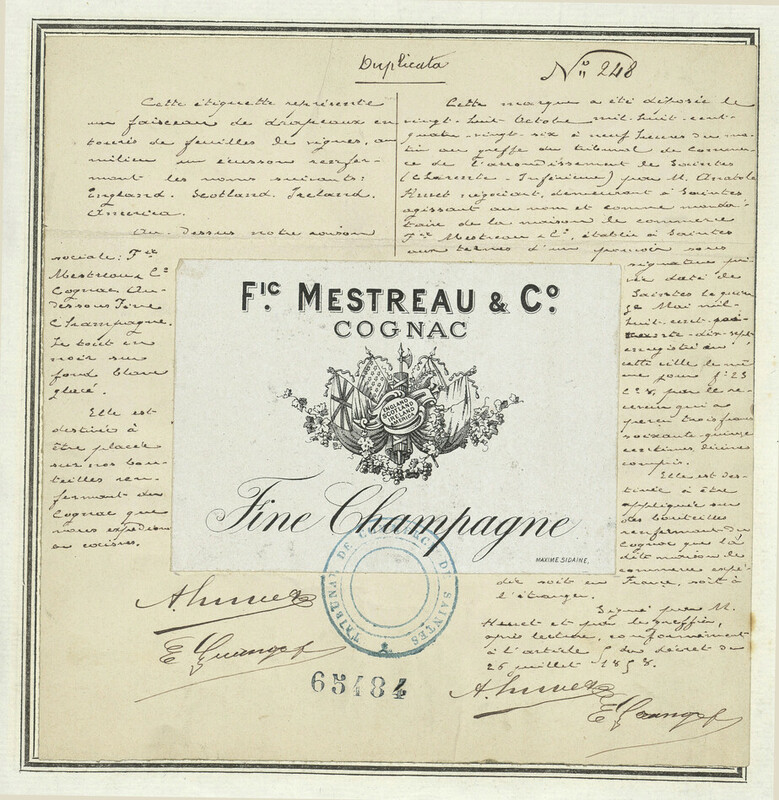 Duplicata
N° 248
Cette étiquette représente
un faisceau de drapeaux en
tourés de feuilles de vignes, au
milieu un écusson renfer-
mant les noms suivants:
England. Scotland. Ireland.
America.
Au-dessus notre raison
sociale: Fic
Mestreau & Co
Cognac Au-
dessous Fine
Champagne.
Le tout en
noir sur
fond blanc
glacé.
Elle est
destinée à
être placée
sur nos bou-
teilles ren-
fermant du
Cognac que
nous expédions
en caisses.
Cette marque a été déposée le
vingt-huit Octobre mil-huit-cent-
quatre-vingt-six à neuf heures du ma-
tin au greffe du tribunal de Commer-
ce de l'arrondissement de Saintes
(Charente-Inférieure) par M. Anatole
Huvet négociant, demeurant à Saintes
agissant au nom et comme manda-
taire de la maison de commerce
Fic Mestreau & Co, établie à Saintes
aux termes d'un pouvoir sous
signatures pri-
vé daté de
Saintes le quin-
ze Mai mil-
huit-cent-
soixante-dix-sept
enregistré en
cette ville le mê-
me jour fo 23
Co 8, par le re-
ceveur qui a
perçu trois francs
soixante quinze
centimes, décimes
compris.
Elle est des-
tinée à être
appliquée sur
des bouteilles
renfermant du
Cognac que la
dite maison de
commerce expé-
die soit en France, soit à
l'étranger.
Signé par M.
Huvet et par le greffier,
après lecture, conformément
à l'article 5 du décret du
26 juillet 1858.
FIC. MESTREAU & CO.
COGNAC
ENGLAND
SCOTLAND
IRELAND
AMERICA
Fine Champagne
MAXIME SIDAINE.
TRIBUNAL DE COMMERCE DE SAINTES
A Huvet
65484
A. Huvet